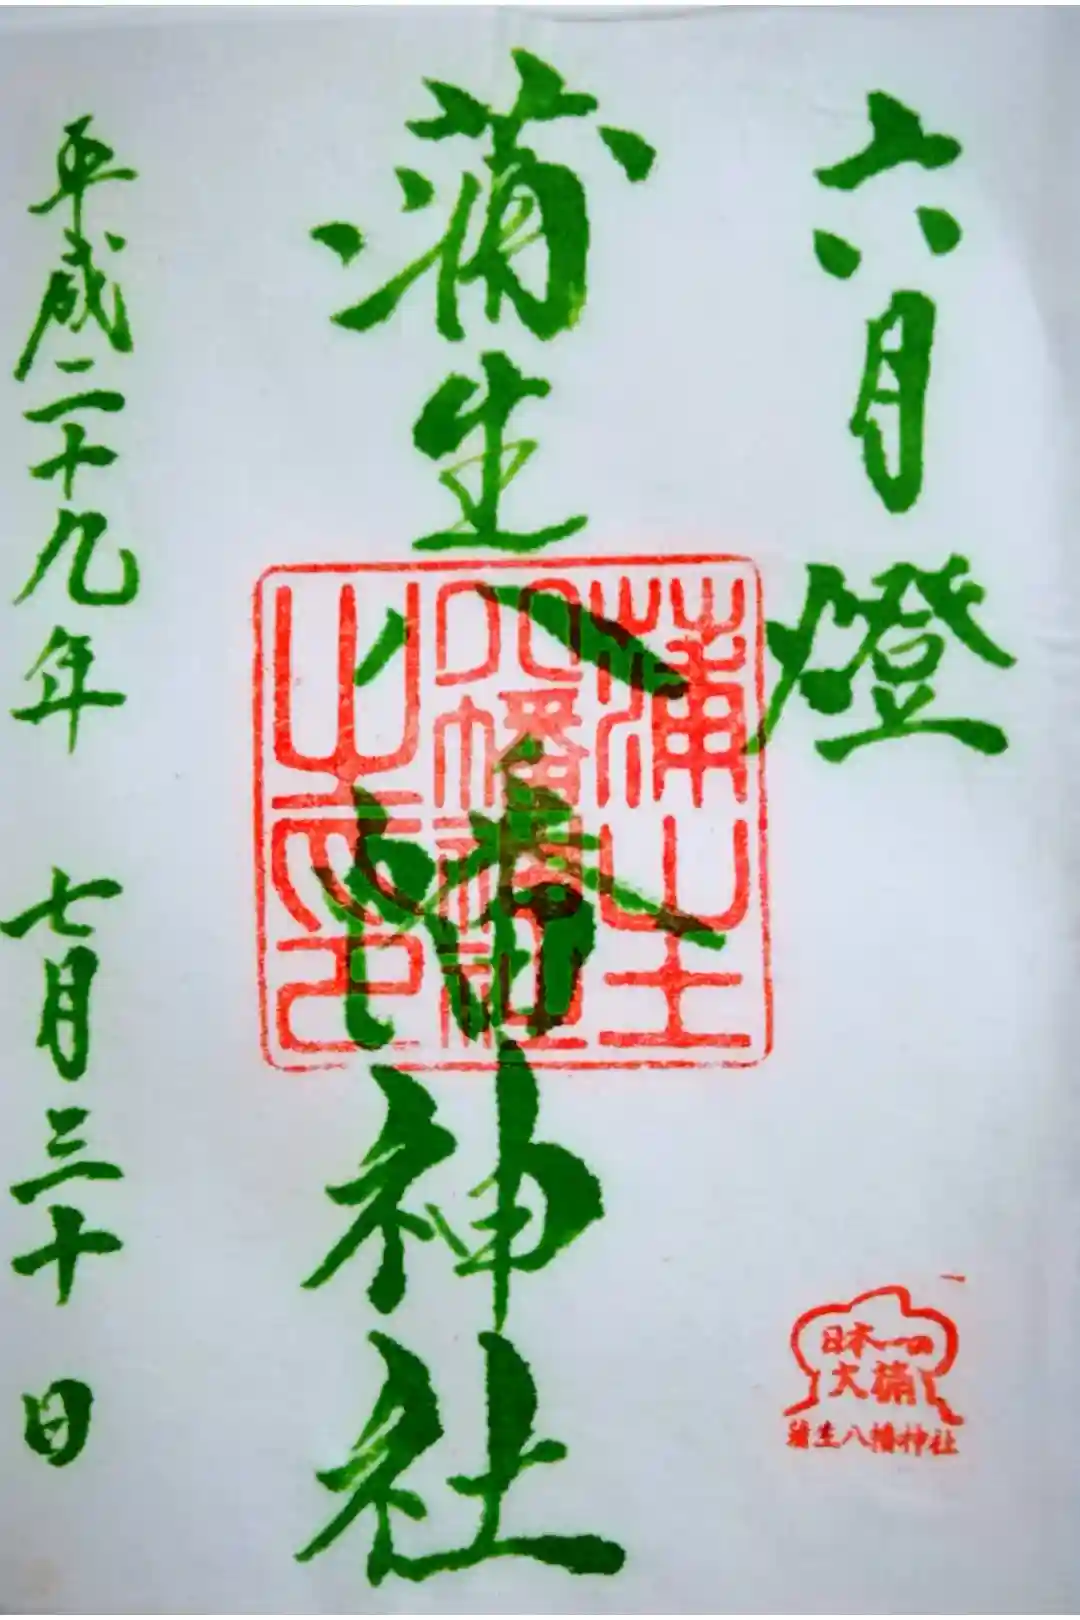 六月燈
蒲生八幡神社
蒲生
八幡神社
之印
平成二十九年 七月三十日
日本一の
大楠
蒲生八幡神社